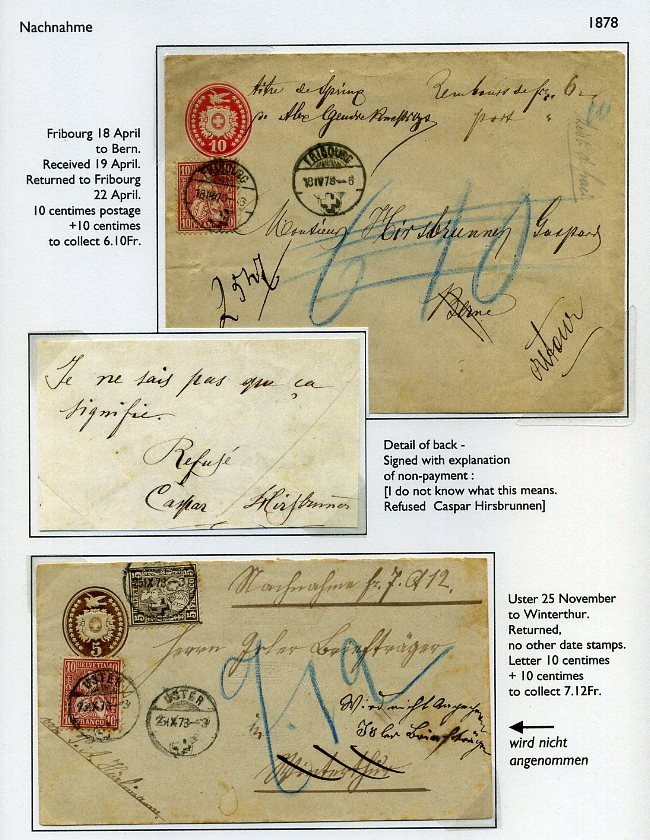 Nachnahme
1878
Fribourg 18 April
to Bern.
Received 19 April.
Returned to Fribourg
22 April.
10 centimes postage
+10 centimes
to collect 6.10Fr.
10
titre de Remboursde frs. 6
Alex Gendre port "
FRIBOURG
18 IV 78–6
FRIBOURG
18 IV 78
10 10
6 10
Monsieur Hirsbrunner Gaspard
Berne
retour
Je ne sais pas que ça
signifie.
Refusé
Caspar Hirsbrunner
Detail of back -
Signed with explanation
of non-payment :
[I do not know what this means.
Refused Caspar Hirsbrunnen]
5
5 FRANCO 5
Nachnahme fr. 7. 12.
Herrn Isler Briefträger
7.12
10 HELVETIA 10
10 FRANCO 10
USTER
USTER
Wird nicht Angenommen
Isler Briefträger
in
Winterthur
Uster 25 November
to Winterthur.
Returned,
no other date stamps.
Letter 10 centimes
+ 10 centimes
to collect 7.12Fr.
wird nicht
angenommen